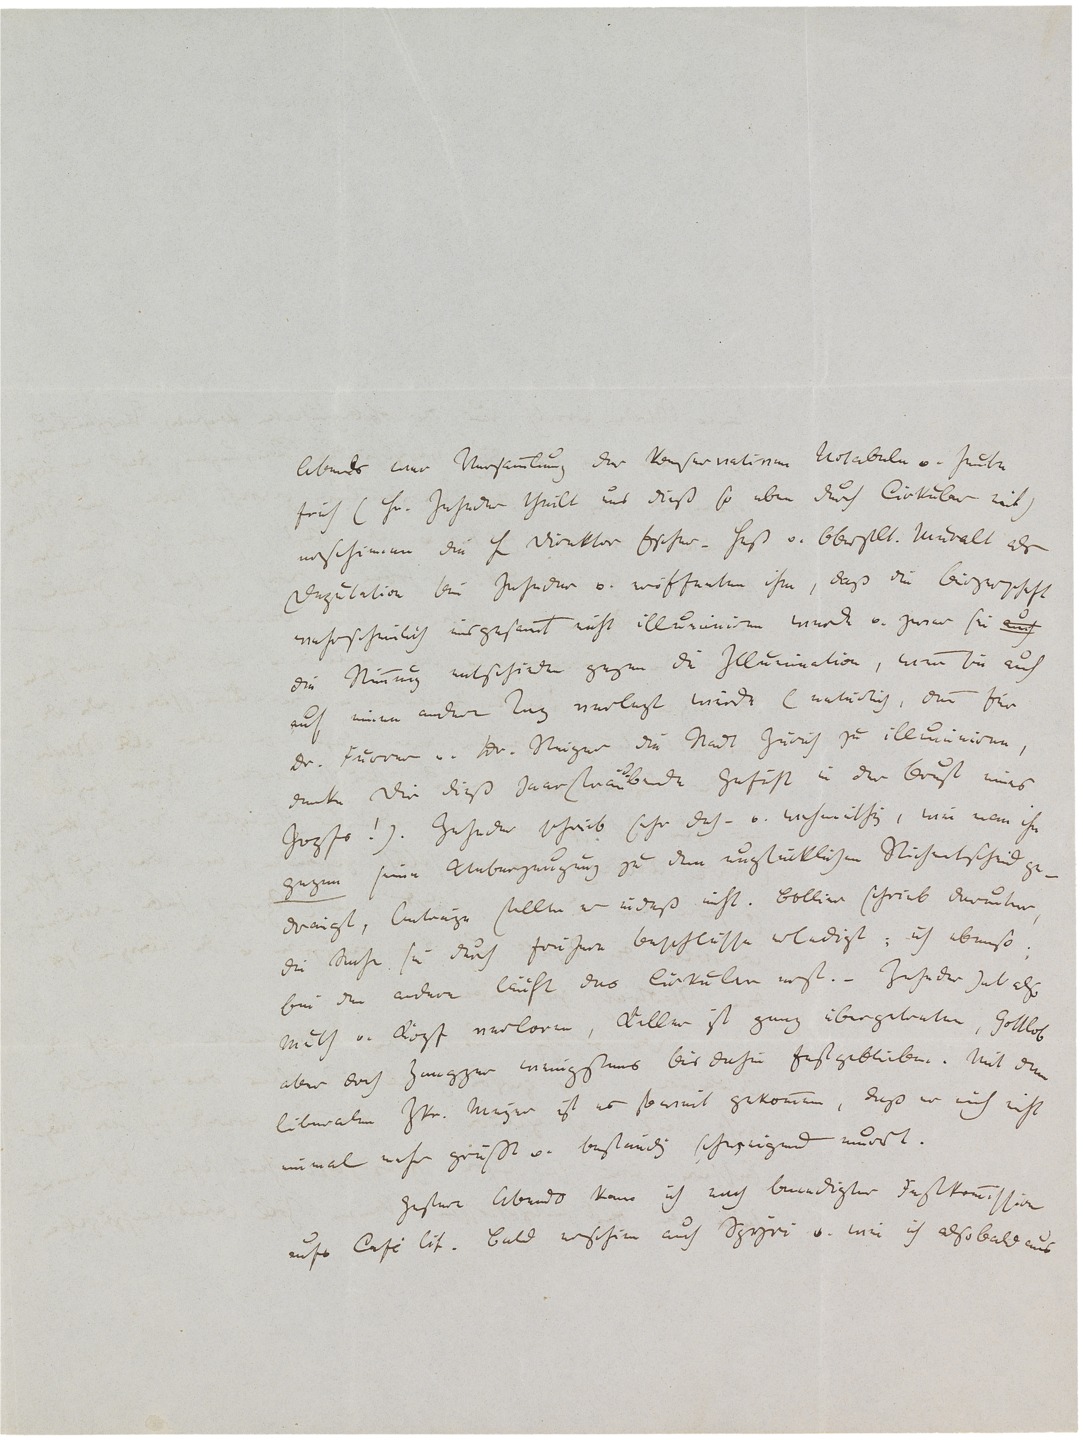 Abends war Versam̄lung der konservativen Notabeln u. heute
früh (Hr. Zehnder theilt uns dieß so eben durch Cirkular mit)
erschienen die H Direktor Escher-Heß u. Oberstlt. Muralt als
Deputation bei Zehnder u. eröffneten ihm, daß die Bürgerschft
wahrscheinlich insgesam̄t nicht illuminiren werde u. zwar sei auch
die Stim̄ung entschieden gegen die Illumination, wen̄ sie auch
auf einen andern Tag verlegt würde (natürlich, den̄ für
Dr. Furrer u. Dr. Steiger die Stadt Zürich zu illuminiren,
denke Dir dieß haarsträubende Gefühl in der Brust eines
Zopfs!). Zehnder schrieb sehr deh- u. wehmüthig, wie man ihn
gegen seine Ueberzeugung zu dem unglücklichen Stichentscheid ge-
drängt, Anträge stellte er indeß nicht. Bollier schrieb darunter,
die Sache sei durch frühere Beschlüsse erledigt; ich ebenso;
bei den andern läuft das Cirkular erst. – Zehnder hat also
Muth u. Kopf verloren, Keller ist ganz übergetreten, Gottlob
aber doch Zangger wenigstens bis dahin festgeblieben. Mit dem
liberalen Meyer ist es soweit gekom̄en, daß er mich nicht
einmal mehr grüßt u. beständig schweigend murrt.
Gestern Abends kam ich nach beendigter Festkom̄ission
aufs Café lit. Bald erschien auch Spyri u. wie ich alsobald aus